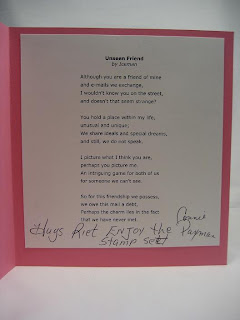 Unseen Friend
Although you are a friend of mine
and e-mails we exchange,
I wouldn't know you on the street,
and doesn't that seem strange?
You hold a place within my life,
unusual and unique;
We share ideals and special dreams,
and still, we do not speak.
I picture what I think you are,
perhaps you picture me.
An intriguing game for both of us
for someone we can't see.
So for this friendship we possess,
we owe this mail a debt,
Perhaps the charm lies in the fact
that we have never met.
Hugs Riet Enjoy the
Stamp Set!